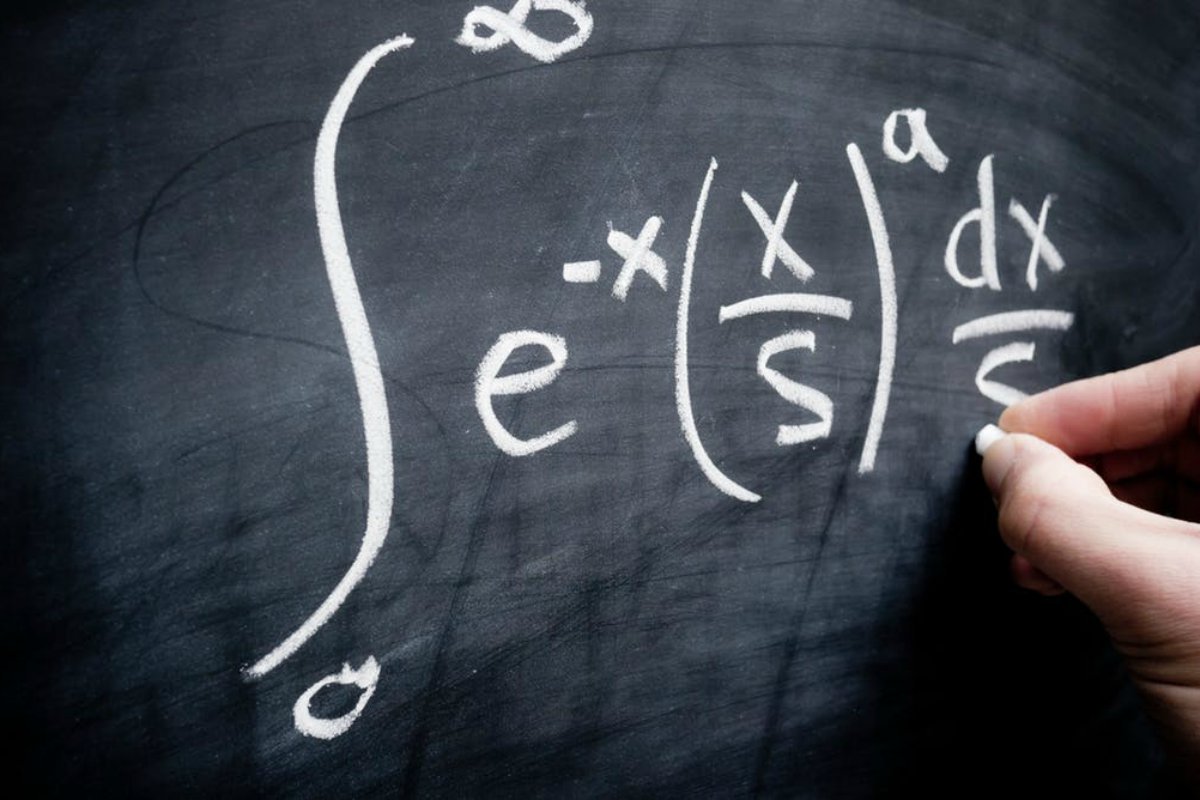 ∫₀^∞ e^(-x) (x/s)^a dx/s